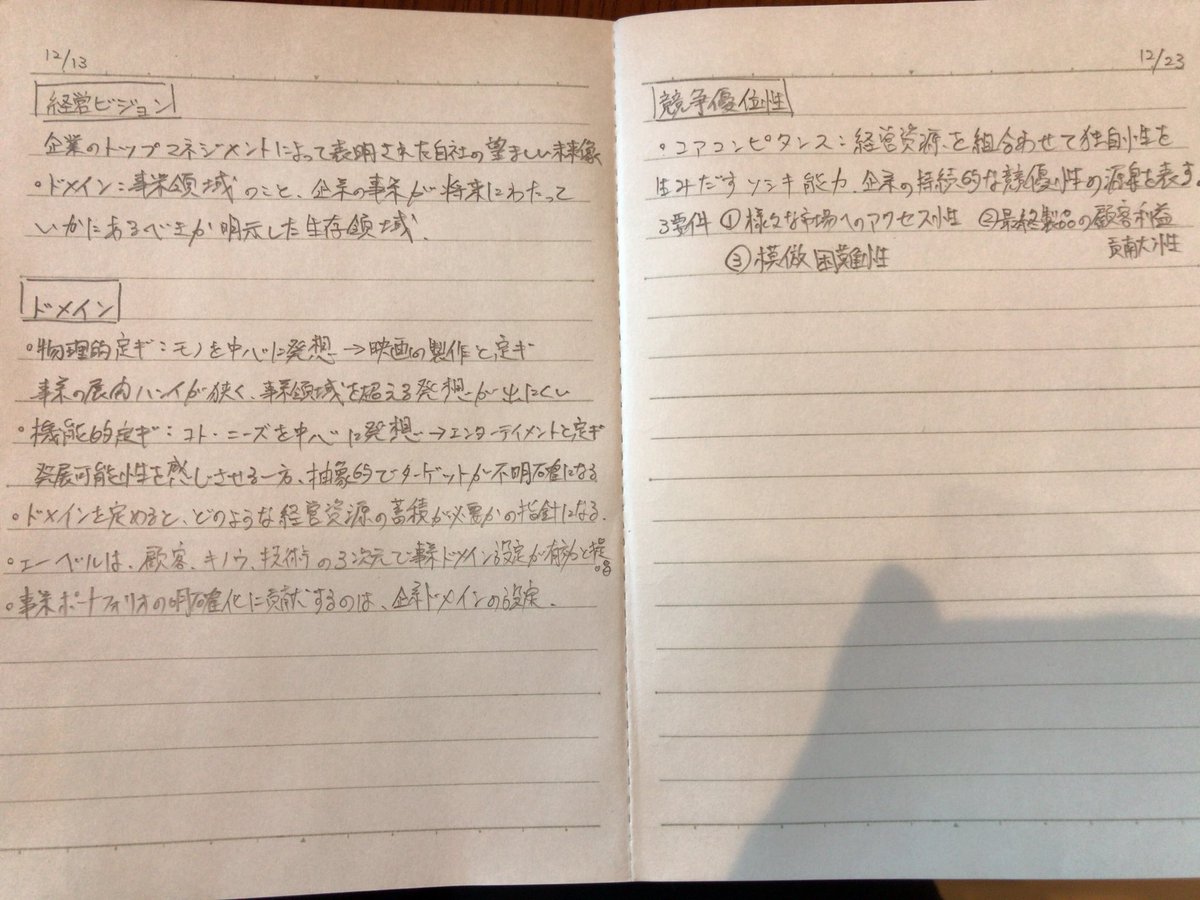 12/13
経営ビジョン
企業のトップマネジメントによって表明された自社の望ましい未来像
・ドメイン：事業領域のこと、企業の事業が将来にわたって
いかにあるべきか明示した生存領域.
ドメイン
・物理的定ギ：モノを中心に発想→映画の製作と定ギ
事業の展開ハンイが狭く、事業領域を超える発想が出にくい
・機能的定ギ：コト・ニーズを中心に発想→エンターテイメントと定ギ
発展可能性を感じさせる一方、抽象的でターゲットが不明確になる
・ドメインを定めると、どのような経営資源の蓄積が必要かの指針になる.
・エーベルは、顧客、キノウ、技術の3次元で事業ドメイン設定が有効と提唱
・事業ポートフォリオの明確化に貢献するのは、企業ドメインの設定.
12/23
競争優位性
・コアコンピタンス：経営資源を組合わせて独自性を
生みだすソシキ能力、企業の持続的な競優性の源泉を表す.
3要件 ①様々な市場へのアクセス性 ②最終製品の顧客利益
貢献大性
③模倣困難性